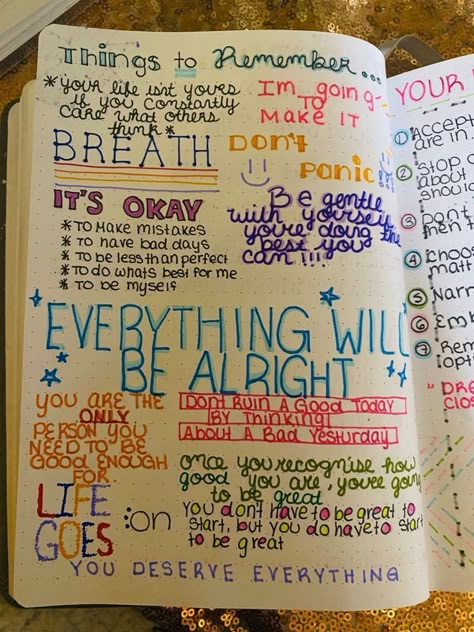 Things to Remember...
*your life isn't yours
if you constantly
care what others
think*
I'm going
TO
MAKE IT
BREATH
DON't
PANIC!!!
IT'S OKAY
* TO MAKE MISTAKES
* TO HAVE BAD DAYS
* TO be less than perfect
* TO do whats best for me
* TO be myself
Be gentle
with yourself
you're doing the
best you
can!!!
EVERYTHING WILL
BE ALRIGHT
YOU ARE THE
ONLY
PERSON YOU
NEED TO BE
GOOD ENOUGH
FOR.
DONT RUIN A GOOD TODAY
BY THINKING
ABOUT A BAD YESTURDAY
once you recognise how
good you are, you're going
to be great
LIFE
GOES
:on
You don't have to be great to
start, but you do have to start
to be great
YOU DESERVE EVERYTHING
YOUR
1 ACCEPT
are in
2 STOP
about
shoul
3 Don't
4 CHOOS
matt
5 Narr
6 Emb
7 Rem
opt
" DRE
clos